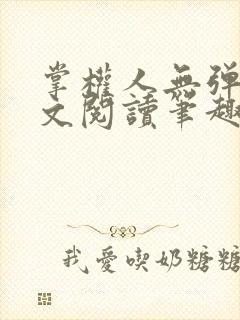 掌權人無彈
文閱讀筆趣
我愛喫奶糖糖